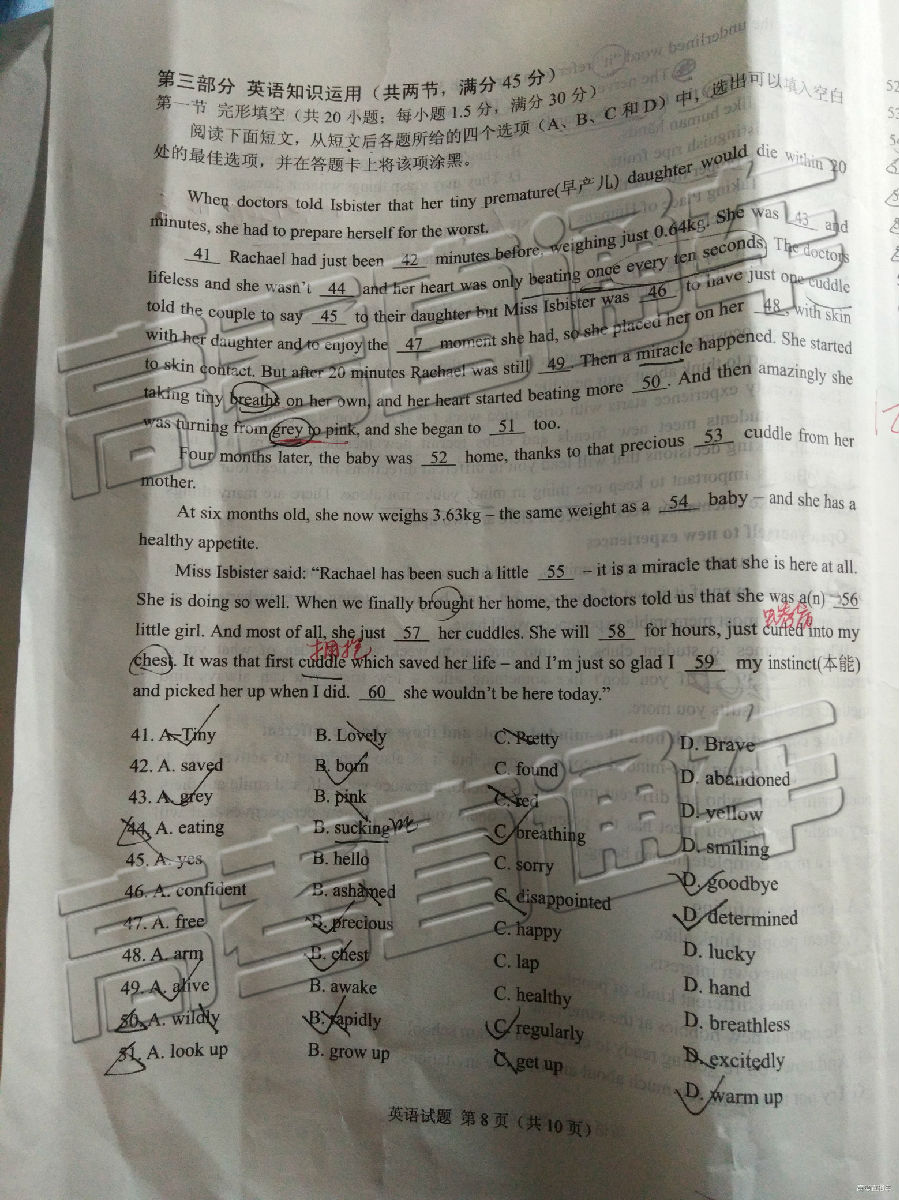 第三部分 英语知识运用（共两节，满分 45 分）
第一节 完形填空（共 20 小题；每小题 1.5 分，满分 30 分）
阅读下面短文，从短文后各题所给的四个选项（A、B、C 和 D）中，选出可以填入空白
处的最佳选项，并在答题卡上将该项涂黑。
When doctors told Isbister that her tiny premature(早产儿) daughter would die within 20
minutes, she had to prepare herself for the worst.
41 Rachael had just been 42 minutes before, weighing just 0.64kg. She was 43 and
lifeless and she wasn't 44 and her heart was only beating once every ten seconds. The doctors
told the couple to say 45 to their daughter but Miss Isbister was 46 to have just one cuddle
with her daughter and to enjoy the 47 moment she had, so she placed her on her 48, with skin
to skin contact. But after 20 minutes Rachael was still 49. Then a miracle happened. She started
taking tiny breaths on her own, and her heart started beating more 50. And then amazingly she
was turning from grey to pink, and she began to 51 too.
Four months later, the baby was 52 home, thanks to that precious 53 cuddle from her
mother.
At six months old, she now weighs 3.63kg – the same weight as a 54 baby – and she has a
healthy appetite.
Miss Isbister said: “Rachael has been such a little 55 – it is a miracle that she is here at all.
She is doing so well. When we finally brought her home, the doctors told us that she was a(n) 56
little girl. And most of all, she just 57 her cuddles. She will 58 for hours, just curled into my
拥抱
chest. It was that first cuddle which saved her life – and I'm just so glad I 59 my instinct(本能)
and picked her up when I did. 60 she wouldn't be here today.”
41. A. Tiny B. Lovely C. Pretty D. Brave
42. A. saved B. born C. found D. abandoned
43. A. grey B. pink C. red D. yellow
44. A. eating B. sucking C. breathing D. smiling
45. A. yes B. hello C. sorry D. goodbye
46. A. confident B. ashamed C. disappointed D. determined
47. A. free B. precious C. happy D. lucky
48. A. arm B. chest C. lap D. hand
49. A. alive B. awake C. healthy D. breathless
50. A. wildly B. rapidly C. regularly D. excitedly
51. A. look up B. grow up C. get up D. warm up
英语试题 第 8 页（共 10 页）
高考直通车
高考直通车